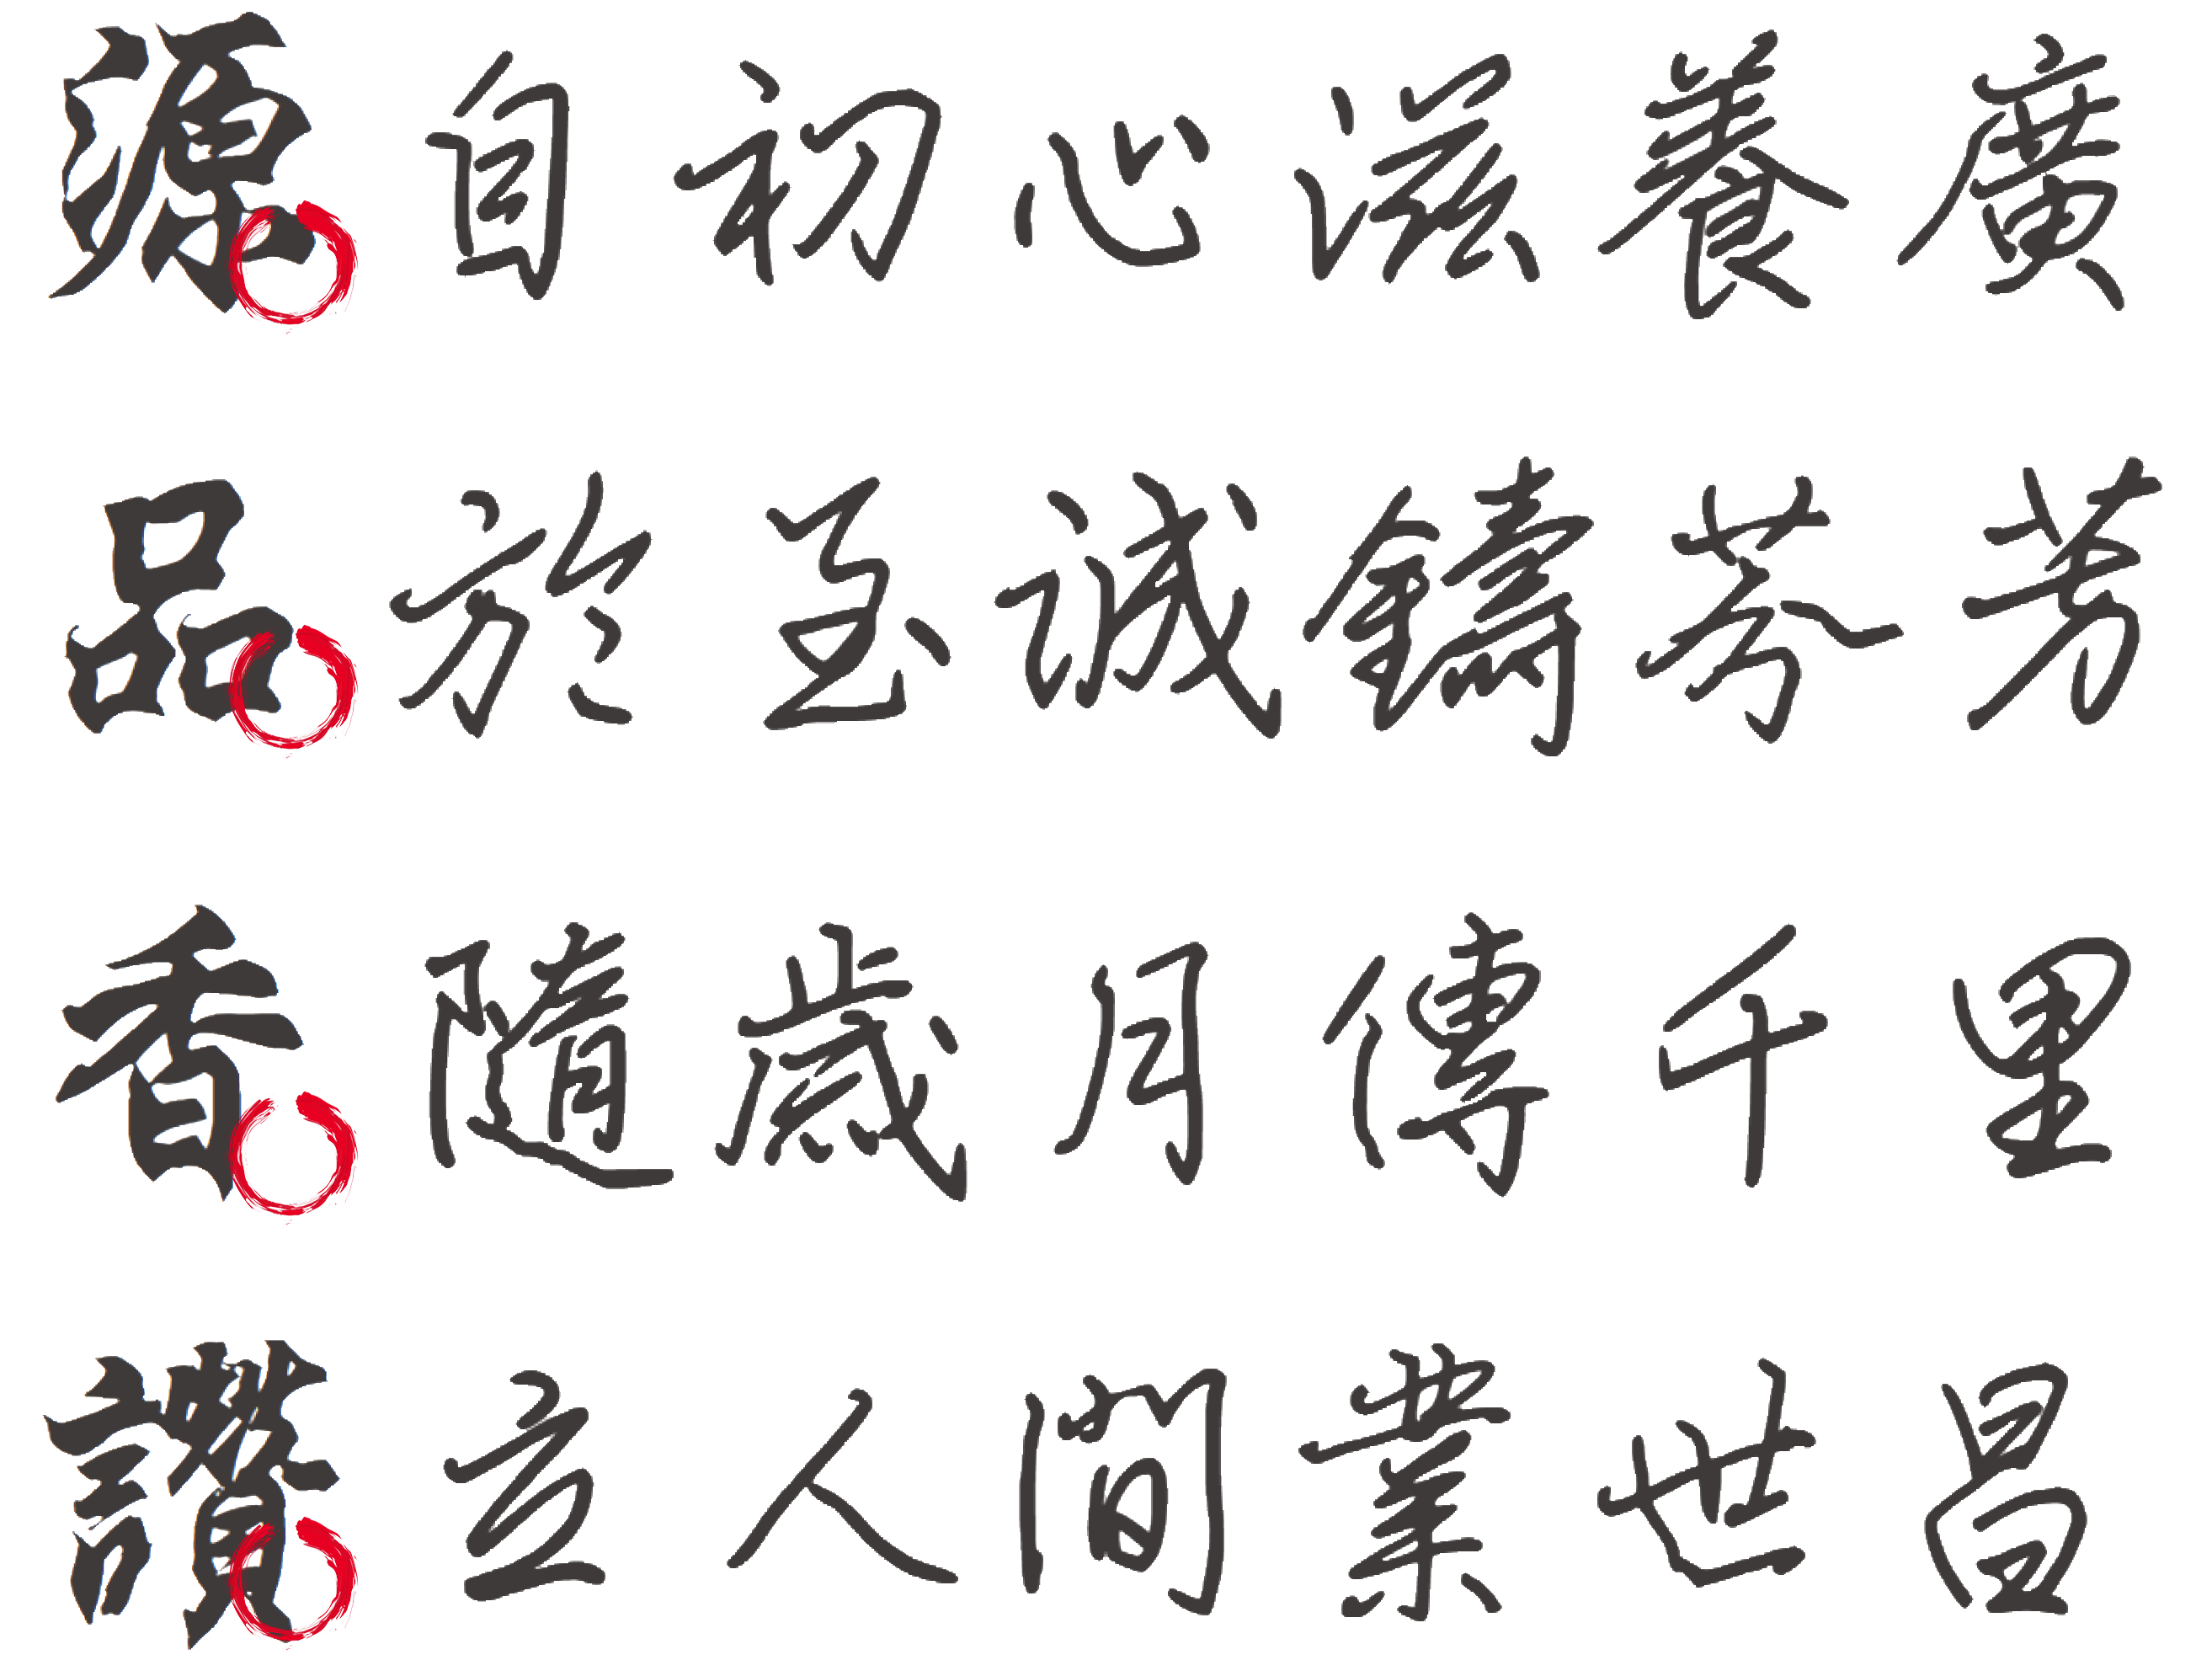 源自初心滋養廣
品於至誠鑄芬芳
香隨歲月傳千里
讚立人間業世昌